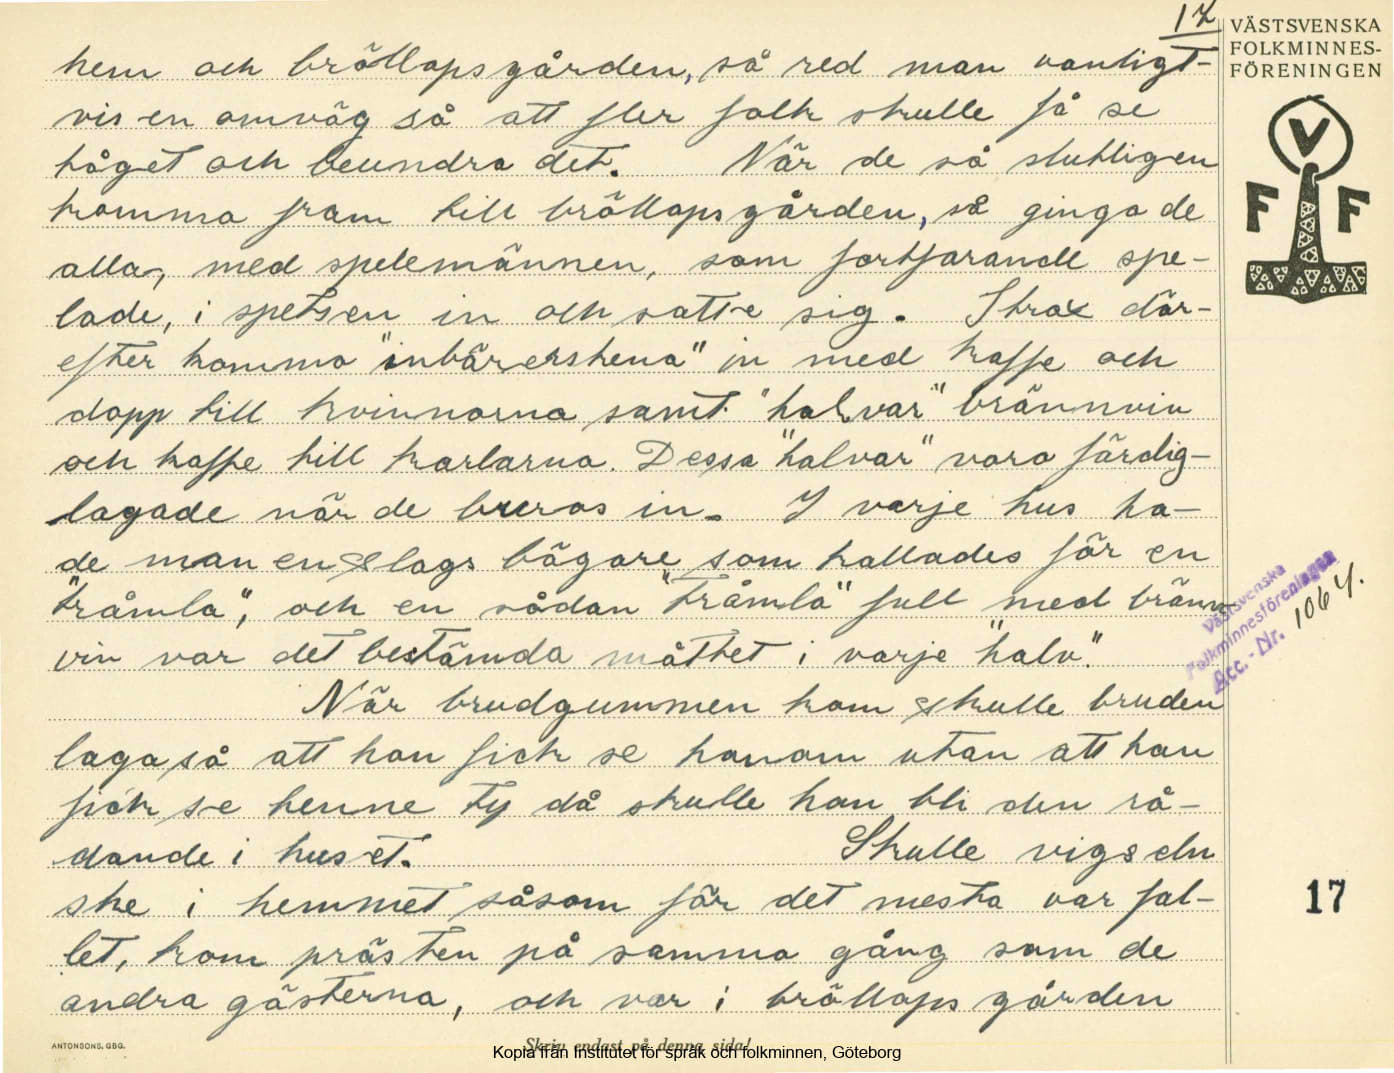 17
VÄSTSVENSKA
FOLKMINNES-
FÖRENINGEN
V
F F
hem och bröllopsgården, så red man vanligt-
vis en omväg så att fler folk skulle få se
tåget och beundra det. När de så slutligen
komma fram till bröllopsgården, så gingo de
alla, med spelemännen, som fortfarande spe-
lade, i spetsen in och satte sig. Strax där-
efter kommo "inbärerskena" in med kaffe och
dopp till kvinnorna samt "halvar" brännvin
och kaffe till karlarna. Dessa "halvar" voro färdig-
lagade när de buros in. I varje hus ha-
de man en slags bägare som kallades för en
"tråmla", och en sådan "tråmla" full med bränn-
vin var det bestämda måttet i varje "halv".
När brudgummen kom skulle bruden
laga så att hon fick se honom utan att han
fick se henne ty då skulle hon bli den rå-
dande i huset. Skulle vigseln
ske i hemmet såsom för det mesta var fal-
let, kom prästen på samma gång som de
andra gästerna, och var i bröllopsgården
Västsvenska
Folkminnesföreningen
Acc. - Nr. 1064.
17
ANTONSONS, GBG.
Skriv endast på denna sida!
Kopia från Institutet för språk och folkminnen, Göteborg